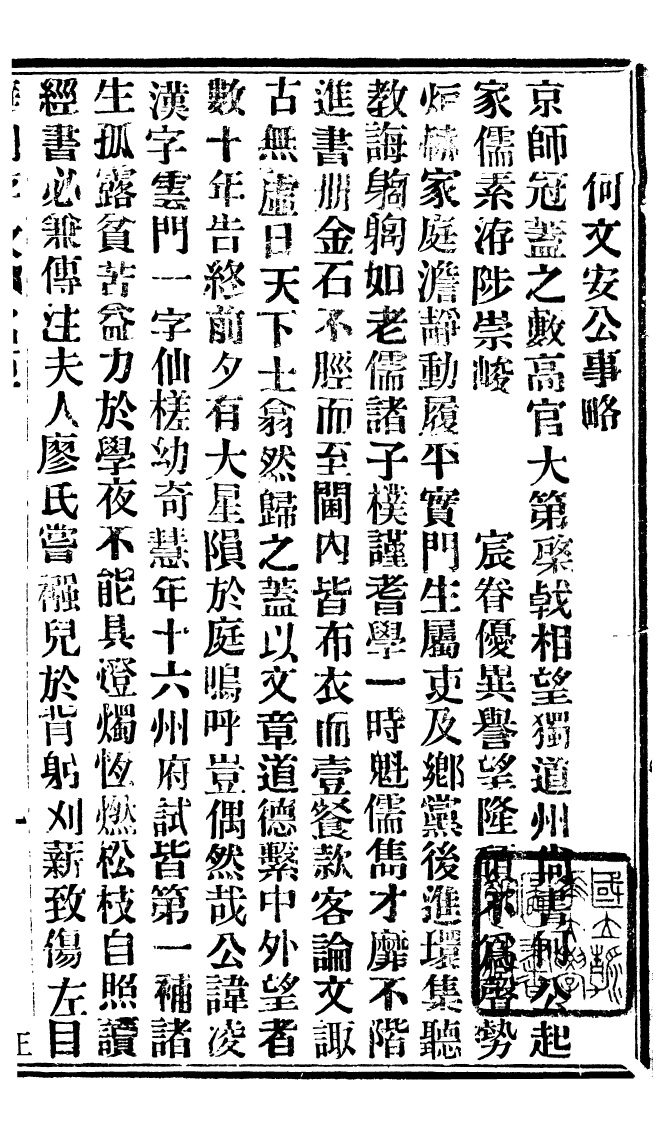 何文安公事略
京師冠蓋之藪高官大第棨戟相望獨道州尚書何公起
家儒素洊陟崇峻　宸眷優異譽望隆碩不爲聲勢
炬赫家庭澹靜動履平實門生屬吏及鄉黨後進環集聽
教誨躹躹如老儒諸子樸謹耆學一時魁儒雋才靡不階
進書册金石不脛而至閫內皆布衣而壹餐款客論文諏
古無虛日天下士翕然歸之蓋以文章道德繫中外望者
數十年告終前夕有大星隕於庭嗚呼豈偶然哉公諱凌
漢字雲門一字仙槎幼奇慧年十六州府試皆第一補諸
生孤露貧苦益力於學夜不能具燈燭恆燃松枝自照讀
經書必兼傳注夫人廖氏嘗襁兒於背躬刈薪致傷左目